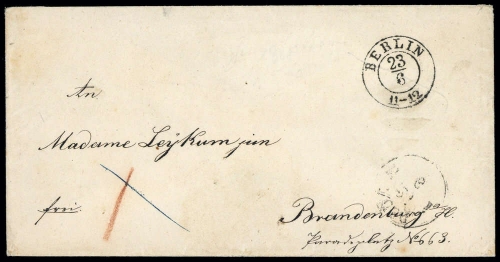 BERLIN
23
6
11-12
An
Madame Leÿkum jun
frei.
Brandenburg
Paradeplatz No 663.